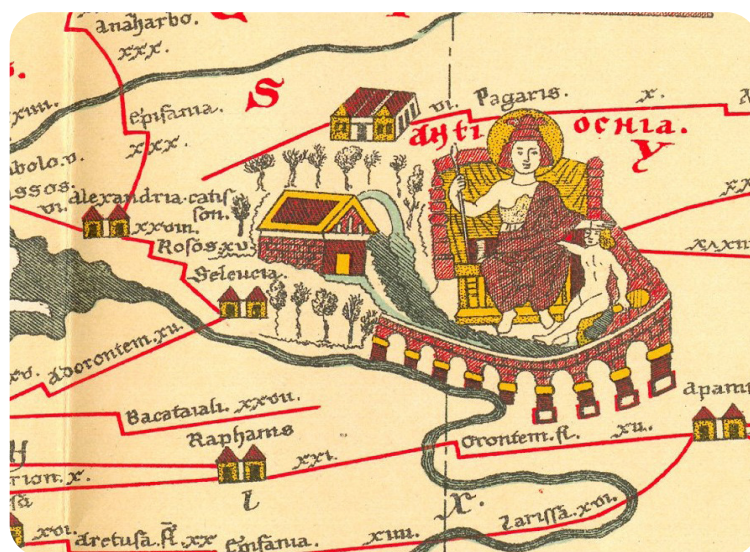 Anaharbo.
xxx.
S
Epifania.
xxx.
vi. Pagaris. x.
ANTIOCHIA.
Y
xiii.
bolo.v.
ssos.
vi. alexandria.catis
son.
xxviii.
Rosos.xv.
Seleucia.
xv. adorontem.xu.
Bacataiali.xxvii.
Raphanis
xxi.
orontem.fl. xu.
apami
tion.x.
l
r.
Larissa.xvi.
xvi. aretusa.fl.xx Epifania. xiiii.